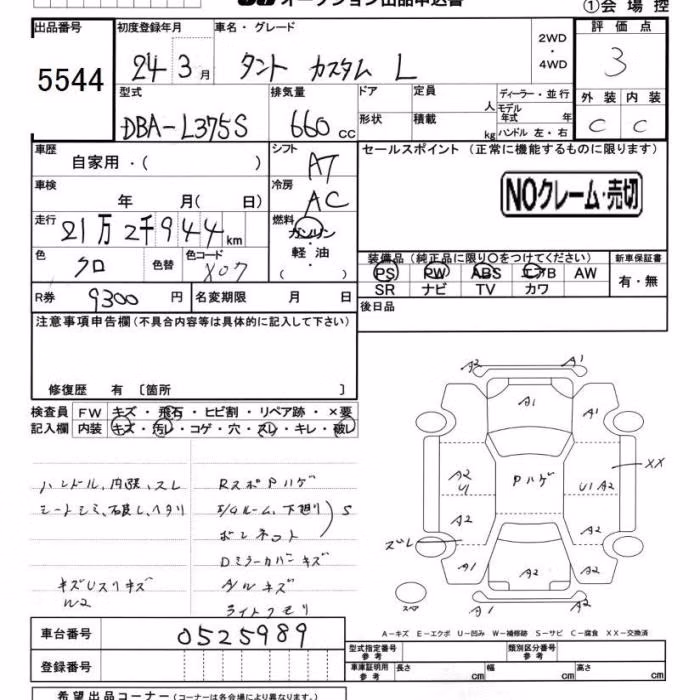 オークション出品申込書
①会場控
出品番号 初度登録年月 車名・グレード 2WD・4WD 評価点
5544 24年3月 タント カスタム L 3
型式 排気量 ドア 定員 人 ディーラー・並行 外装 内装
DBA-L375S 660cc 形状 積載 kg モデル年式 年 ハンドル 左・右 C C
車歴 自家用・( ) シフト AT セールスポイント (正常に機能するものに限ります)
車検 年 月( 日) 冷房 AC NOクレーム・売切
走行 21万2千944km 燃料 ガソリン・軽油・( )
色 クロ 色替 色コード X07 装備品 (純正品に限り○をつけてください) 新車保証書
PS PW ABS エアB AW 有・無
SR ナビ TV カワ
R券 9300円 名変期限 月 日 後日品
注意事項申告欄 (不具合内容等は具体的に記入して下さい)
修復歴 有 [箇所 ]
検査員記入欄 FW キズ・飛石・ヒビ割・リペア跡・×要
内装 キズ・汚レ・コゲ・穴・スレ・キレ・破レ
ハンドル、内張、スレ
シートシミ、破レ、ヘタリ
キズUスリキズ
W2
RスポPハゲ
E/Gルーム、下廻り S
ボンネット
Dミラーカバーキズ
A/Wキズ
ライトクモリ
A2 A1
A1 A1
A2 U1 Pハゲ U1 A2 XX
A2 A2
ズレ
A1 A2 A2
スペア A1 A2
A-キズ E-エクボ U-凹み W-補修跡 S-サビ C-腐食 XX-交換済
車台番号 0525989
登録番号
型式指定番号 参考 類別区分番号 参考
車庫証明用 参考 長さ cm 幅 cm 高さ cm
希望出品コーナー (コーナーは各会場により異なります。)